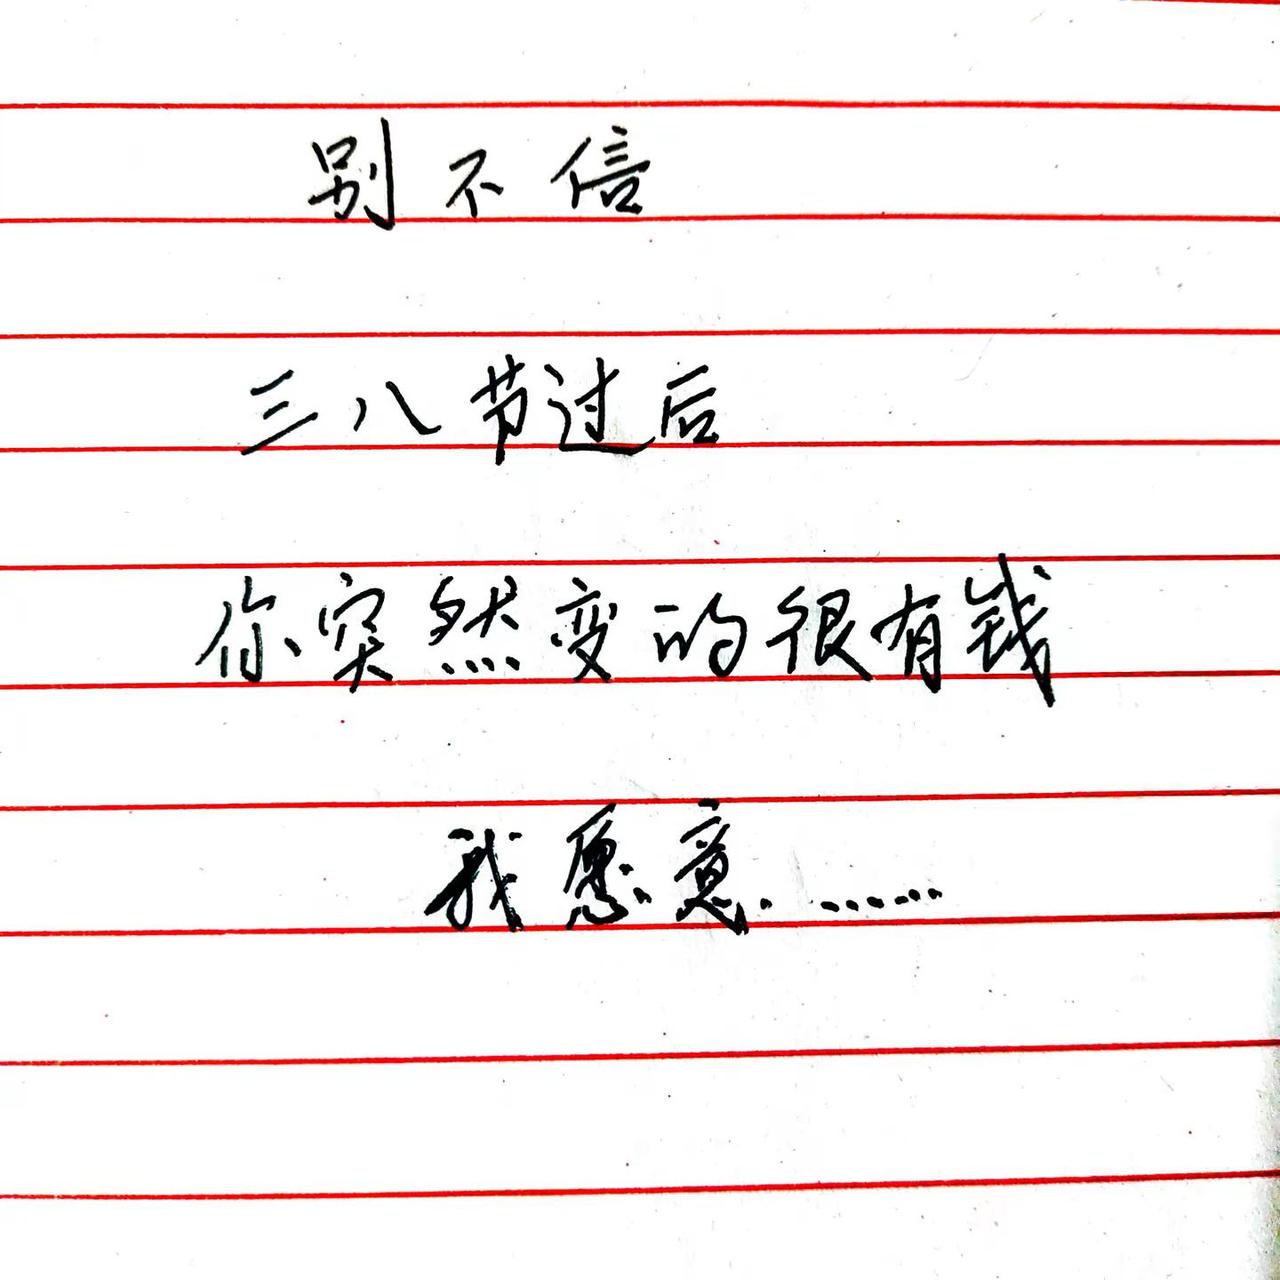 别不信
三八节过后
你突然变的很有钱
我愿意.……